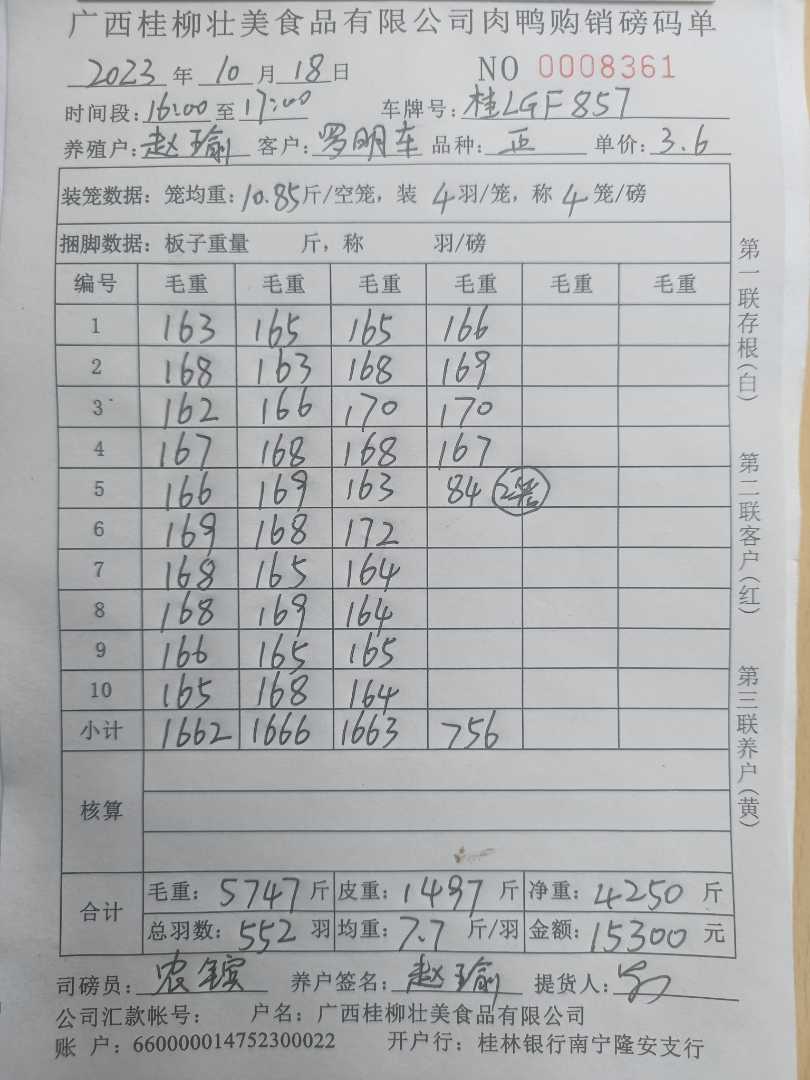 广西桂柳壮美食品有限公司肉鸭购销磅码单
2023年10月18日 NO 0008361
时间段:16:00至17:00 车牌号:桂LGF857
养殖户:赵瑜 客户:罗明车 品种:正 单价:3.6
装笼数据:笼均重:10.85斤/空笼,装 4羽/笼,称 4笼/磅
捆脚数据:板子重量 斤,称 羽/磅
编号 毛重 毛重 毛重 毛重 毛重 毛重
1 163 165 165 166
2 168 163 168 169
3 162 166 170 170
4 167 168 168 167
5 166 169 163 84 2笼
6 169 168 172
7 168 165 164
8 168 169 164
9 166 165 165
10 165 168 164
小计 1662 1666 1663 756
核算
合计
毛重:5747斤 皮重:1497斤 净重:4250斤
总羽数:552羽 均重:7.7斤/羽 金额:15300元
司磅员:农镔 养户签名:赵瑜 提货人:
公司汇款帐号: 户名:广西桂柳壮美食品有限公司
账 户:660000014752300022 开户行:桂林银行南宁隆安支行
第一联存根(白)
第二联客户(红)
第三联养户(黄)